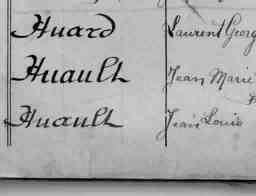 Huard Laurent Georg
Huault Jean Marie
Huault Jean Louis